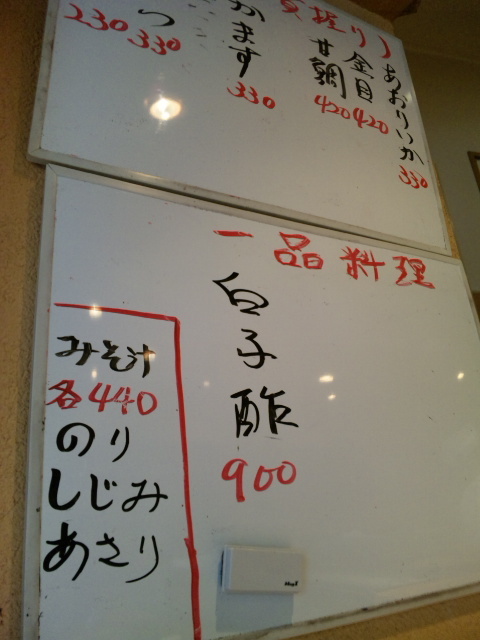 握り)
あおりいか
330
金目
420
甘鯛
420
かます
330
つ
330
230
一品料理
白子酢
900
みそ汁
各440
のり
しじみ
あさり